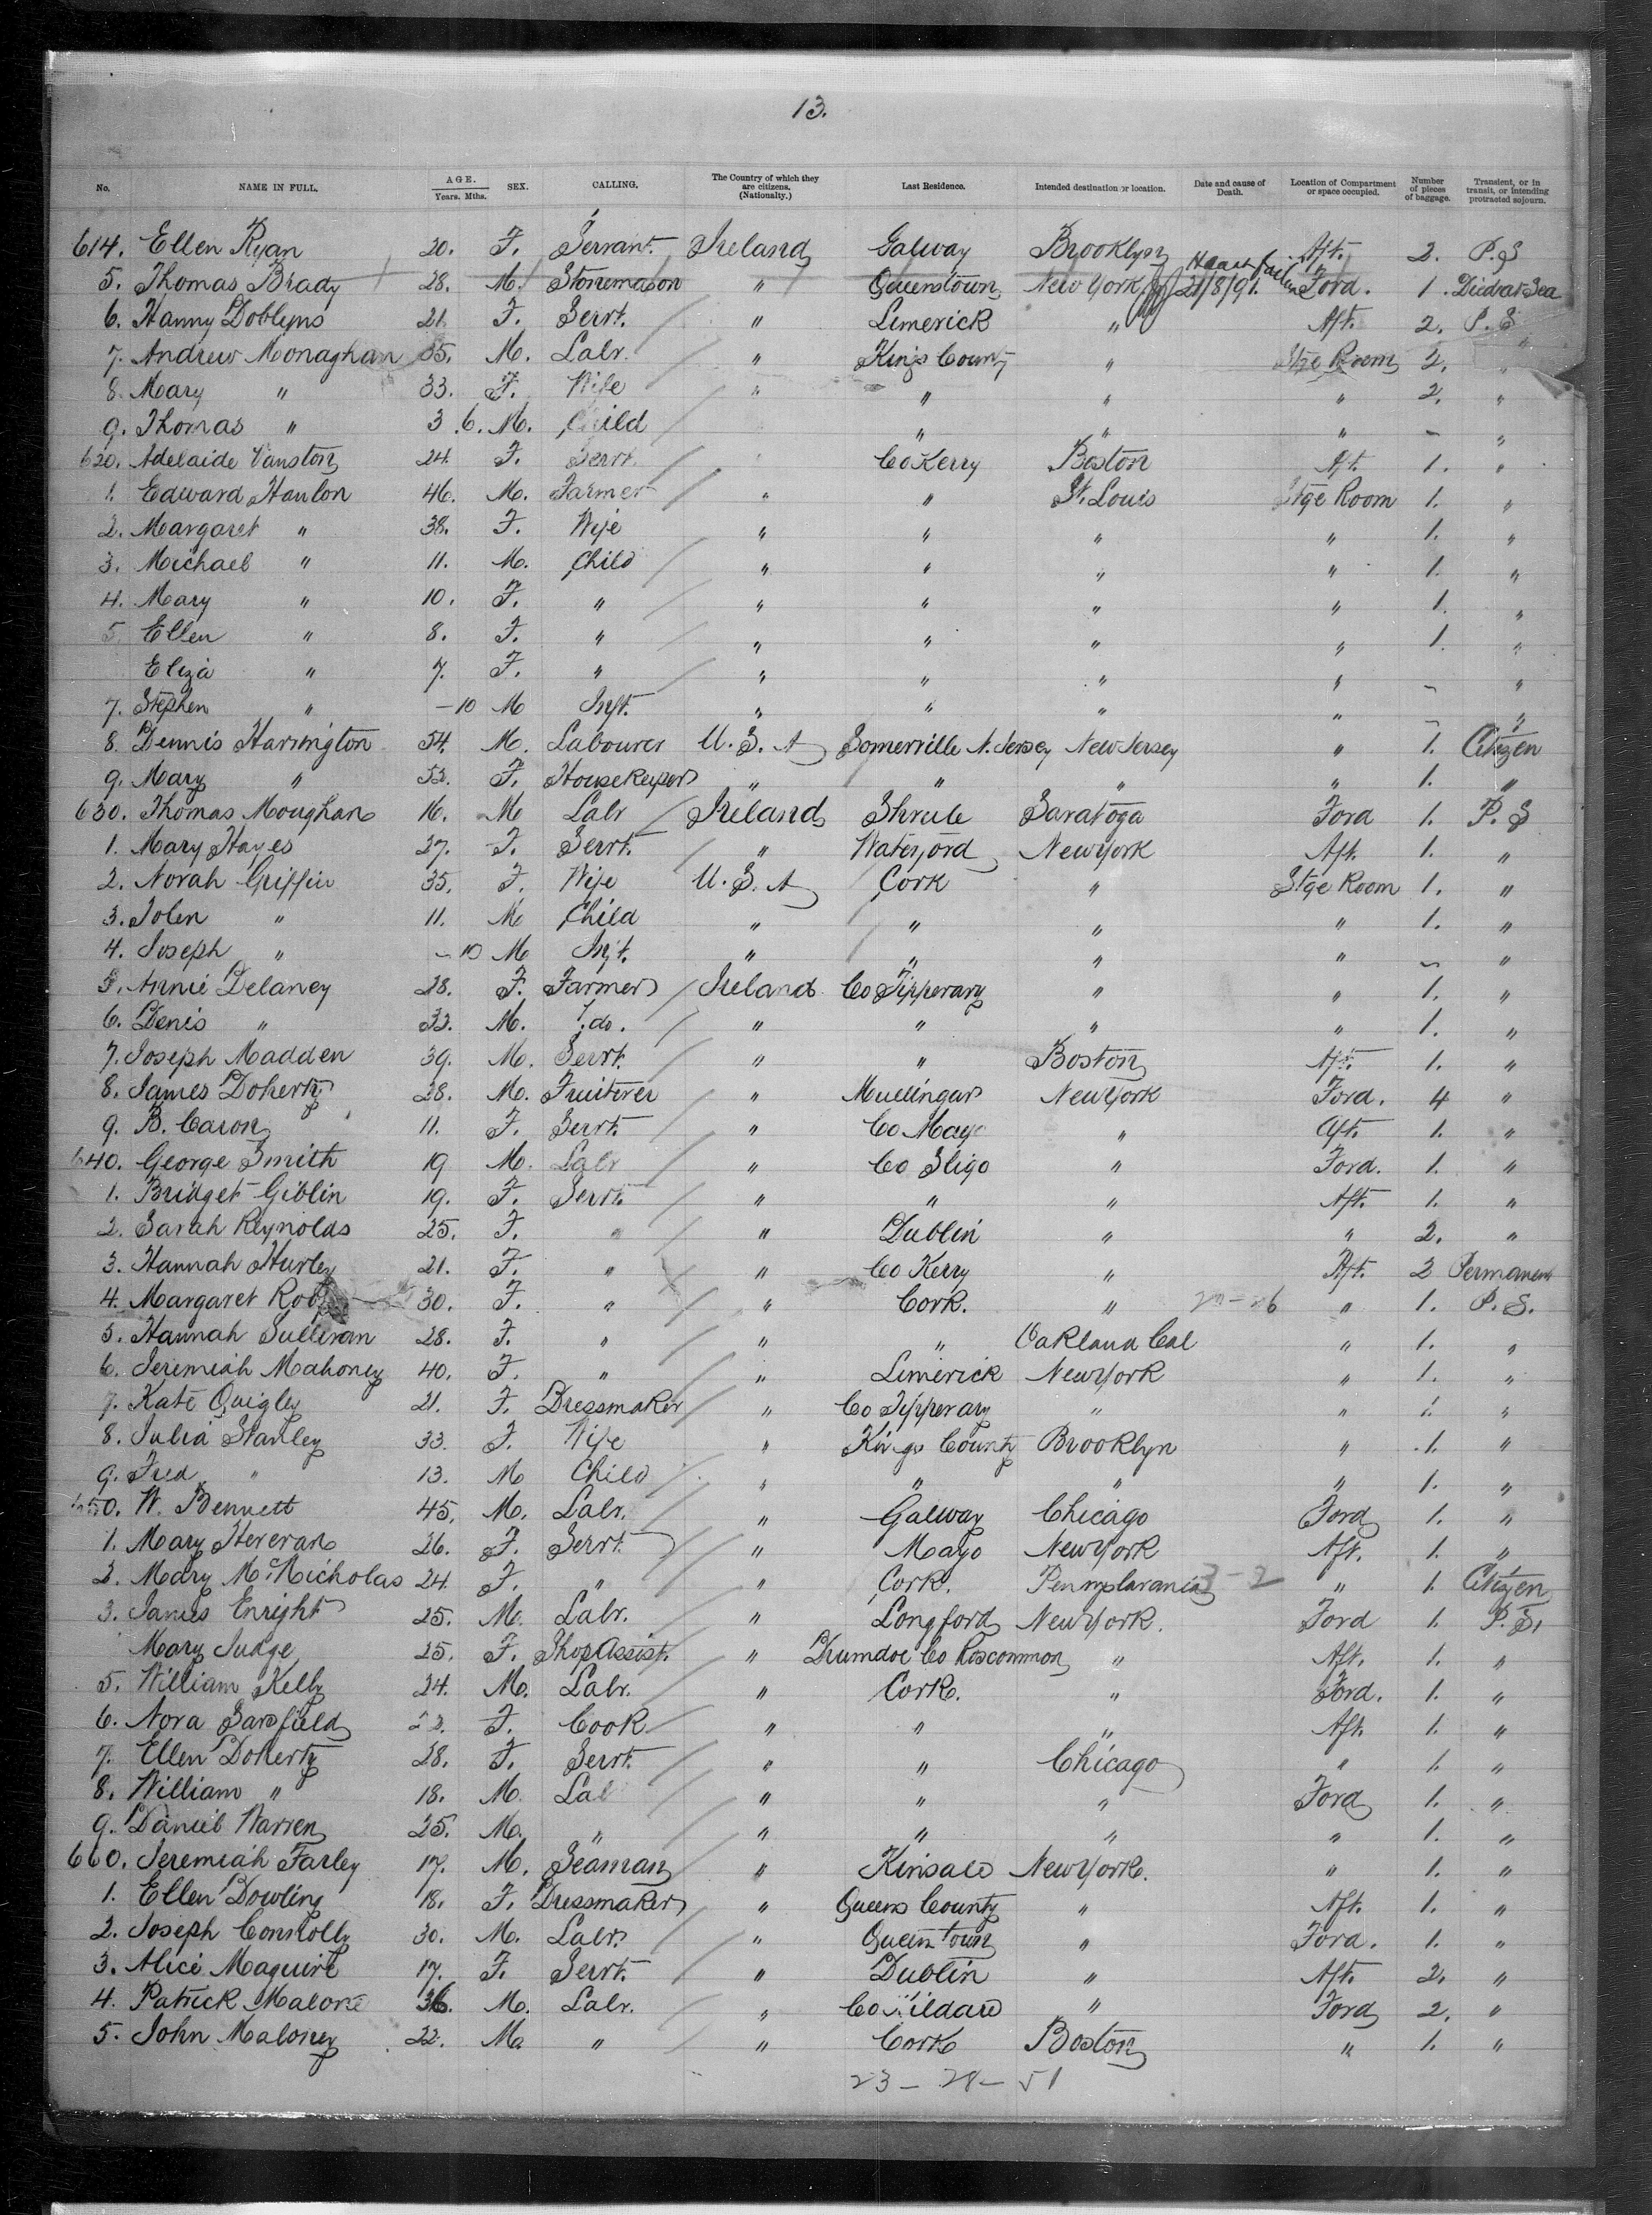 13.
No. NAME IN FULL. AGE. Years. Mths. SEX. CALLING. The Country of which they are citizens. (Nationality.) Last Residence. Intended destination or location. Date and cause of Death. Location of Compartment or space occupied. Number of pieces of baggage. Transient, or in transit, or intending protracted sojourn.
614. Ellen Ryan 20. F. Servant. Ireland Galway Brooklyn Aft. 2. P.S
5. Thomas Brady 28. M. Stonemason " Queenstown New York 21/8/91. Heart failure Ford. 1. Died at Sea
6. Hanny Doblyns 21. F. Servt. " Limerick " Aft. 2. P.S
7. Andrew Monaghan 35. M. Labr. " Kings County " Stge Room 2. "
8. Mary " 33. F. Wife " " " " 2. "
9. Thomas " 3 .6. M. Child " " " - "
620. Adelaide Vanston 24. F. Servt. " Co Kerry Boston Aft. 1. "
1. Edward Hanlon 46. M. Farmer " " St. Louis Stge Room 1. "
2. Margaret " 38. F. Wife " " " " 1. "
3. Michael " 11. M. Child " " " " 1. "
4. Mary " 10. F. " " " " " 1. "
5. Ellen " 8. F. " " " " " 1. "
Eliza " 7. F. " " " " " - "
7. Stephen " -10 M Inft. " " " " - "
8. Dennis Harrington 54. M. Labourer U.S.A Somerville N. Jersey New Jersey " 1. Citizen
9. Mary " 53. F. Housekeeper " " " " 1. "
630. Thomas Moughan 16. M Labr Ireland Shrule Saratoga Ford 1. P.S
1. Mary Hayes 27. F. Servt. " Waterford New York Aft. 1. "
2. Norah Griffin 35. F. Wife U.S.A Cork " Stge Room 1. "
3. John " 11. M Child " " " " 1. "
4. Joseph " -10 M Inft. " " " " - "
5. Annie Delaney 28. F. Farmer Ireland Co Tipperary " " 1. "
6. Denis " 33. M. do. " " " " 1. "
7. Joseph Madden 39. M. Servt. " " Boston Aft. 1. "
8. James Doherty 28. M. Fruiterer " Mullingar New York Ford. 4 "
9. B. Caron 11. F. Servt. " Co Mayo " Aft. 1. "
640. George Smith 19 M. Labr " Co Sligo " Ford. 1. "
1. Bridget Giblin 19. F. Servt. " " " Aft. 1. "
2. Sarah Reynolds 25. F. " " Dublin " " 2. "
3. Hannah Hurley 21. F. " " Co Kerry " Aft. 2 Permanent
4. Margaret 30. F. " " Cork. " " 1. P.S.
5. Hannah Sullivan 28. F. " " " Oakland Cal " 1. "
6. Jeremiah Mahoney 40. F. " " Limerick New York " 1. "
7. Kate Quigley 21. F. Dressmaker " Co Tipperary " " 1. "
8. Julia Stanley 33. F. Wife " Kings County Brooklyn " 1. "
9. Fred " 13. M Child " " " " 1. "
650. W. Bennett 45. M. Labr. " Galway Chicago Ford 1. "
1. Mary Heveran 26. F. Servt. " Mayo New York Aft. 1. "
2. Mary McNicholas 24. F. " " Cork. Pennsylvania 3-2 " 1. Citizen
3. James Enright 25. M. Labr. " Longford New York. Ford 1. P.S.
Mary Judge 25. F. Shop Assist. " Drumdoe Co Roscommon " Aft. 1. "
5. William Kelly 24. M. Labr. " Cork. " Ford. 1. "
6. Nora Sarsfield F. Cook " " " Aft. 1. "
7. Ellen Doherty 28. F. Servt. " " Chicago " 1. "
8. William " 18. M. Lab " " " Ford 1. "
9. Daniel Warren 25. M. " " " " " 1. "
660. Jeremiah Farley 17. M. Seaman " Kinsale New York. " 1. "
1. Ellen Dowling 18. F. Dressmaker " Queens County " Aft. 1. "
2. Joseph Connolly 30. M. Labr. " Queenstown " Ford. 1. "
3. Alice Maguire 17. F. Servt. " Dublin " Aft. 2. "
4. Patrick Malone 36. M. Labr. " Co Kildare " Ford 2. "
5. John Maloney 22. M. " " Cork Boston " 1. "
23 - 28 - 51